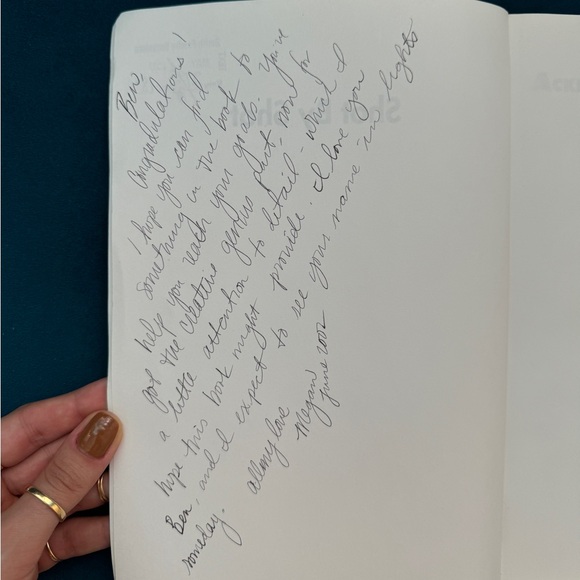 Ben,
Congradulations!
I hope you can find
something in the book to
help you reach your goals. You've
got the creative genius part - now for
a little attention to detail - which I
hope this book might provide. I love you
Ben, and I expect to see your name in lights
someday.
all my love
Megan
June 2002
Shot by Shot